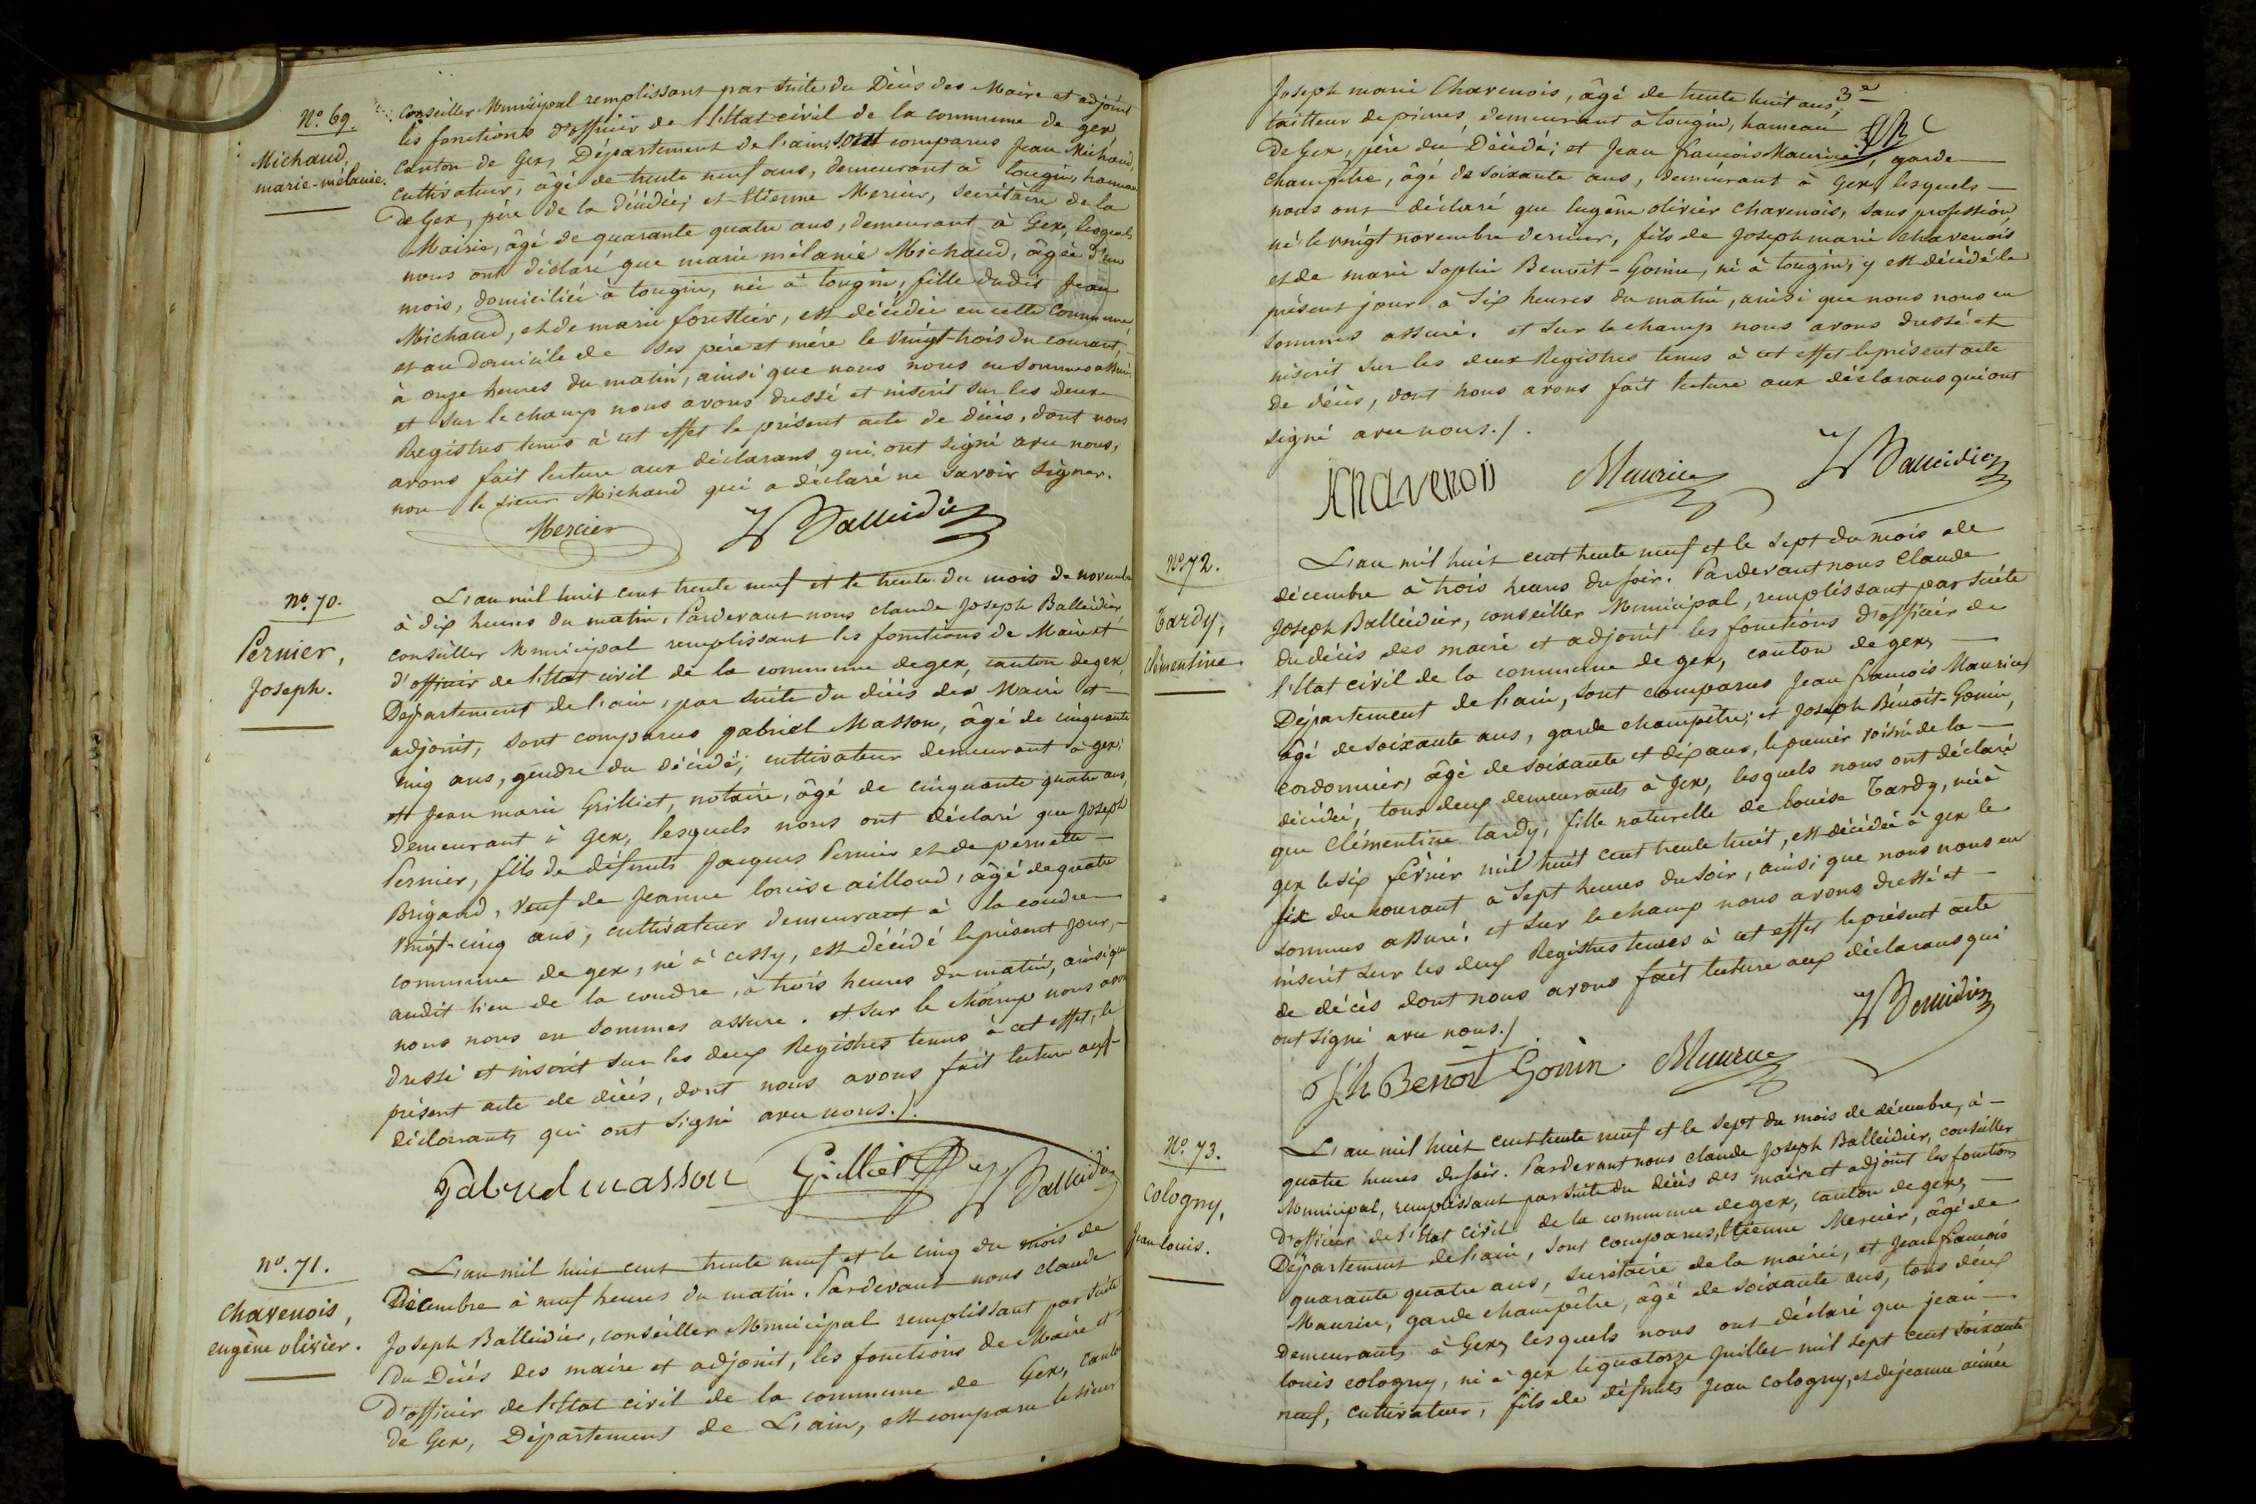 Nº. 69.
Michaud,
marie-mélanie.
Conseiller Municipal remplissant par suite du Décès des Maire et adjoint
les fonctions d'officier de l'Etat civil de la commune de gex,
Canton de Gex, Département de l'ain, sont comparus Jean Michaud,
cultivateur, âgé de trente neuf ans, demeurant à tougin, hameau
de Gex, père de la décédée; et Etienne Mercier, secrétaire de la
Mairie, âgé de quarante quatre ans, demeurant à Gex, lesquels
nous ont déclaré que marie mélanie Michaud, âgée d'un
mois, domiciliée à tougin, née à tougin, fille dudit Jean
Michaud, et de marie forestier, est décédée en cette Commune
et au domicile de ses père et mère le vingt-trois du courant,
à onze heures du matin, ainsi que nous nous en sommes assuré.
et sur le champ nous avons dressé et inscrit sur les deux
Registres tenus à cet effet le présent acte de décès, dont nous
avons fait lecture aux déclarans qui ont signé avec nous,
non le sieur Michaud qui a déclaré ne savoir signer.
Mercier Balleidier
nº. 70.
Pernier,
Joseph.
L'an mil huit cent trente neuf et le trente du mois de novembre
à dix heures du matin, Pardevant nous claude Joseph Balleidier
conseiller Municipal remplissant les fonctions de Maire et
d'officier de l'Etat civil de la commune de gex, canton de gex,
Département de l'ain, par suite du décès des Maire et
adjoint, sont comparus gabriel Masson, âgé de cinquante
cinq ans, gendre du décédé, cultivateur demeurant à gex;
et Jean marie Grilliet, notaire, âgé de cinquante quatre ans,
demeurant à Gex, lesquels nous ont déclaré que Joseph
Pernier, fils de défunts Jacques Pernier et de pernette
Brigand, veuf de Jeanne louise ailloud, âgé de quatre
vingt-cinq ans, cultivateur demeurant à la coudre
commune de gex, né à cessy, est décédé le présent jour,
audit lieu de la coudre, à trois heures du matin, ainsi que
nous nous en sommes assuré. et sur le champ nous avons
dressé et inscrit sur les deux Registres tenus à cet effet, le
présent acte de décès, dont nous avons fait lecture aux
déclarants qui ont signé avec nous./.
Gabriel masson Grilliet Balleidier
nº. 71.
Chavenois,
eugène olivier.
L'an mil huit cent trente neuf et le cinq du mois de
Décembre à neuf heures du matin. Pardevant nous claude
Joseph Balleidier, conseiller Municipal remplissant par suite
du Décès des maire et adjoint, les fonctions de Maire et
d'officier de l'Etat civil de la commune de Gex, canton
de Gex, Département de L'ain, est comparu le sieur
3e
Joseph marie Chavenois, âgé de trente huit ans,
tailleur de pierres demeurant à tougin, hameau
de Gex, père du Décédé; et Jean françois Maurice, garde
champêtre, âgé de soixante ans, demeurant à Gex, lesquels
nous ont déclaré que Eugène olivier chavenois, sans profession,
né le vingt novembre dernier, fils de Joseph marie chavenois
et de marie sophie Benoit-Gonin, né à tougin, y est décédé le
présent jour à six heures du matin, ainsi que nous nous en
sommes assuré. et sur le champ nous avons dressé et
inscrit sur les deux Registres tenus à cet effet le présent acte
de décès, dont nous avons fait lecture aux déclarans qui ont
signé avec nous./.
chavenois Maurice Balleidier
Nº 72.
Tardy,
clémentine.
L'an mil huit cent trente neuf et le sept du mois de
décembre à trois heures du soir. Pardevant nous Claude
Joseph Balleidier, conseiller Municipal, remplissant par suite
du décès des maire et adjoint les fonctions d'officier de
l'Etat civil de la commune de gex, canton de gex,
Département de l'ain, sont comparus Jean françois Maurice,
âgé de soixante ans, garde champêtre; et Joseph Bénoit-Gonin,
cordonnier, âgé de soixante et dix ans, le premier voisin de la
décédée, tous deux demeurants à Gex, lesquels nous ont déclaré
que Clémentine tardy, fille naturelle de louise Tardy, née à
gex le six février mil huit cent trente huit, est décédée à gex le
six du courant à sept heures du soir, ainsi que nous nous en
sommes assuré. et sur le champ nous avons dressé et
inscrit sur les deux Registres tenus à cet effet le présent acte
de décès dont nous avons fait lecture aux déclarans qui
ont signé avec nous./.
Jh Benoit Gonin. Maurice Balleidier
Nº. 73.
Cologny,
Jean louis.
L'an mil huit cent trente neuf et le sept du mois de décembre, à
quatre heures du soir. Pardevant nous claude Joseph Balleidier, conseiller
Municipal, remplissant par suite du décès des maire et adjoint les fonctions
d'officier de l'Etat civil de la commune de gex, canton de gex,
Département de l'ain, sont comparus, Etienne Mercier, âgé de
quarante quatre ans, secrétaire de la mairie, et Jean françois
Maurice, garde champêtre, âgé de soixante ans, tous deux
demeurants à Gex, lesquels nous ont déclaré que jean
louis cologny, né à gex le quatorze Juillet mil sept cent soixante
neuf, cultivateur, fils de défunts Jean Cologny, et de jeanne aimée